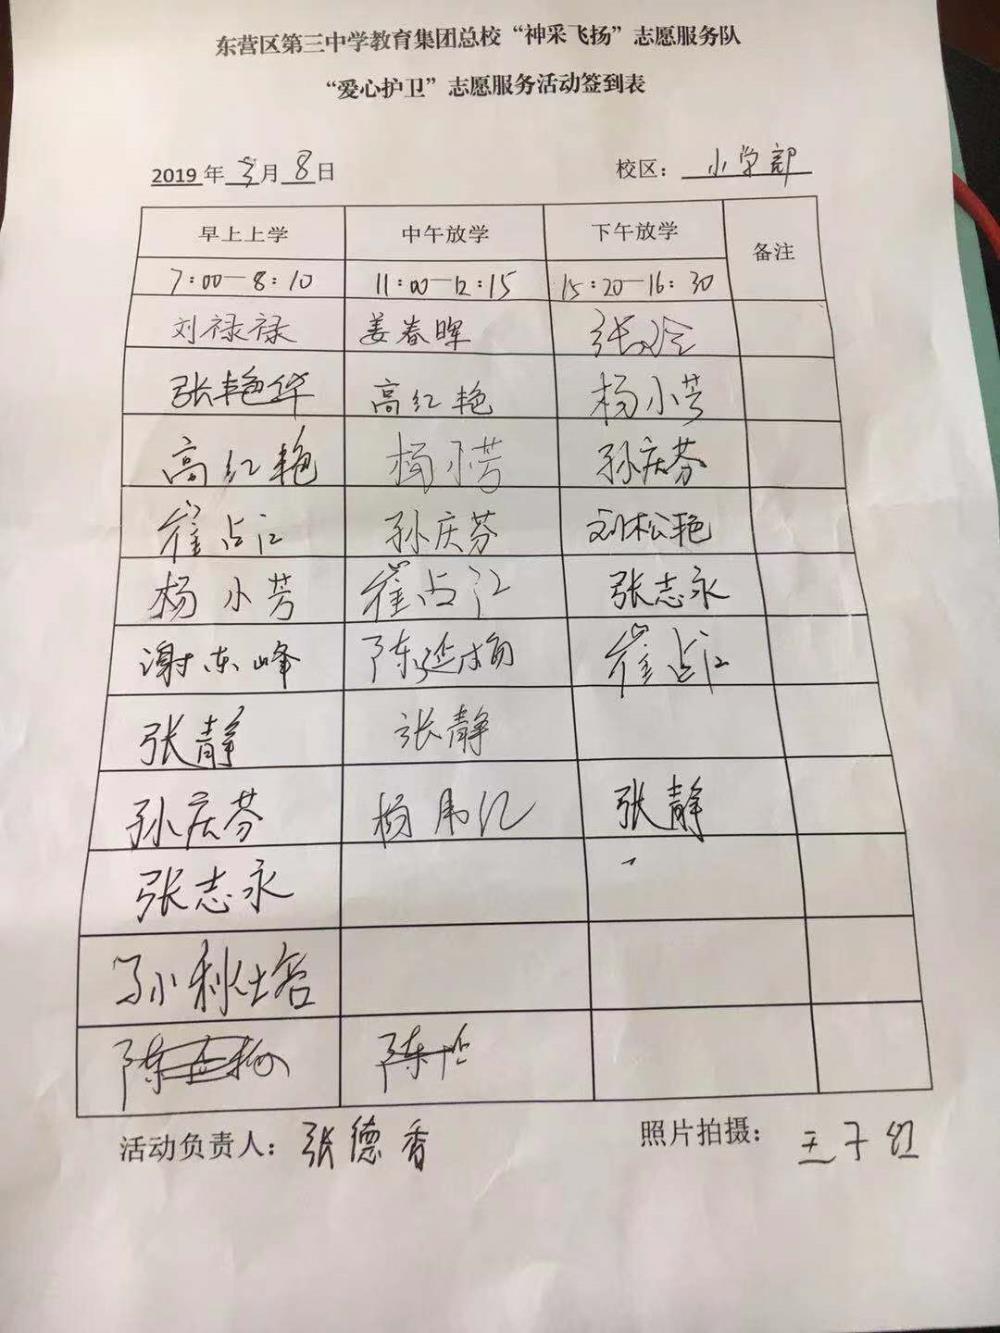 东营区第三中学教育集团总校“神采飞扬”志愿服务队
“爱心护卫”志愿服务活动签到表
2019年3月8日 校区：小学部
早上上学 中午放学 下午放学 备注
7:00—8:10 11:00—12:15 15:20—16:30
刘禄禄 姜春晖 张
张艳华 高红艳 杨小芳
高红艳 杨小芳 孙庆芬
崔占江 孙庆芬 刘松艳
杨小芳 崔占江 张志永
谢东峰 陈延 崔占江
张静 张静
孙庆芬 杨 张静
张志永
孙利
陈 陈
活动负责人：张德香 照片拍摄：王子红